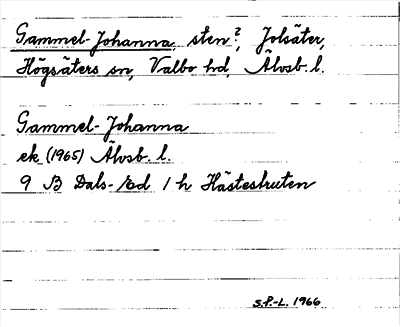 Gammel-Johanna, sten?, Jolsäter,
Högsäters sn, Valbo hd, Älvsb. l.
Gammel-Johanna
ek. (1965) Älvsb. l.
9 B Dals-Ed 1 h Hästeskuten
S.P.-L. 1966